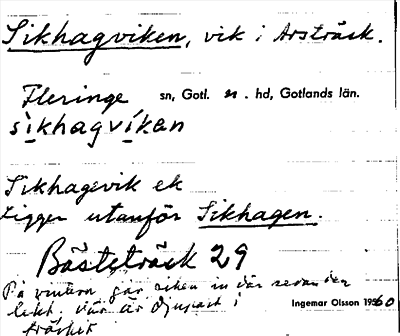 Sikhagviken, vik i Arsträsk.
Fleringe sn, Gotl. n. hd, Gotlands län.
sikhagvikan
Sikhagevik ek
Ligger utanför Sikhagen.
Bästeträsk 29
På vintern går siken in där sedan den
lekt, där är djupast i
träsket
Ingemar Olsson 1960